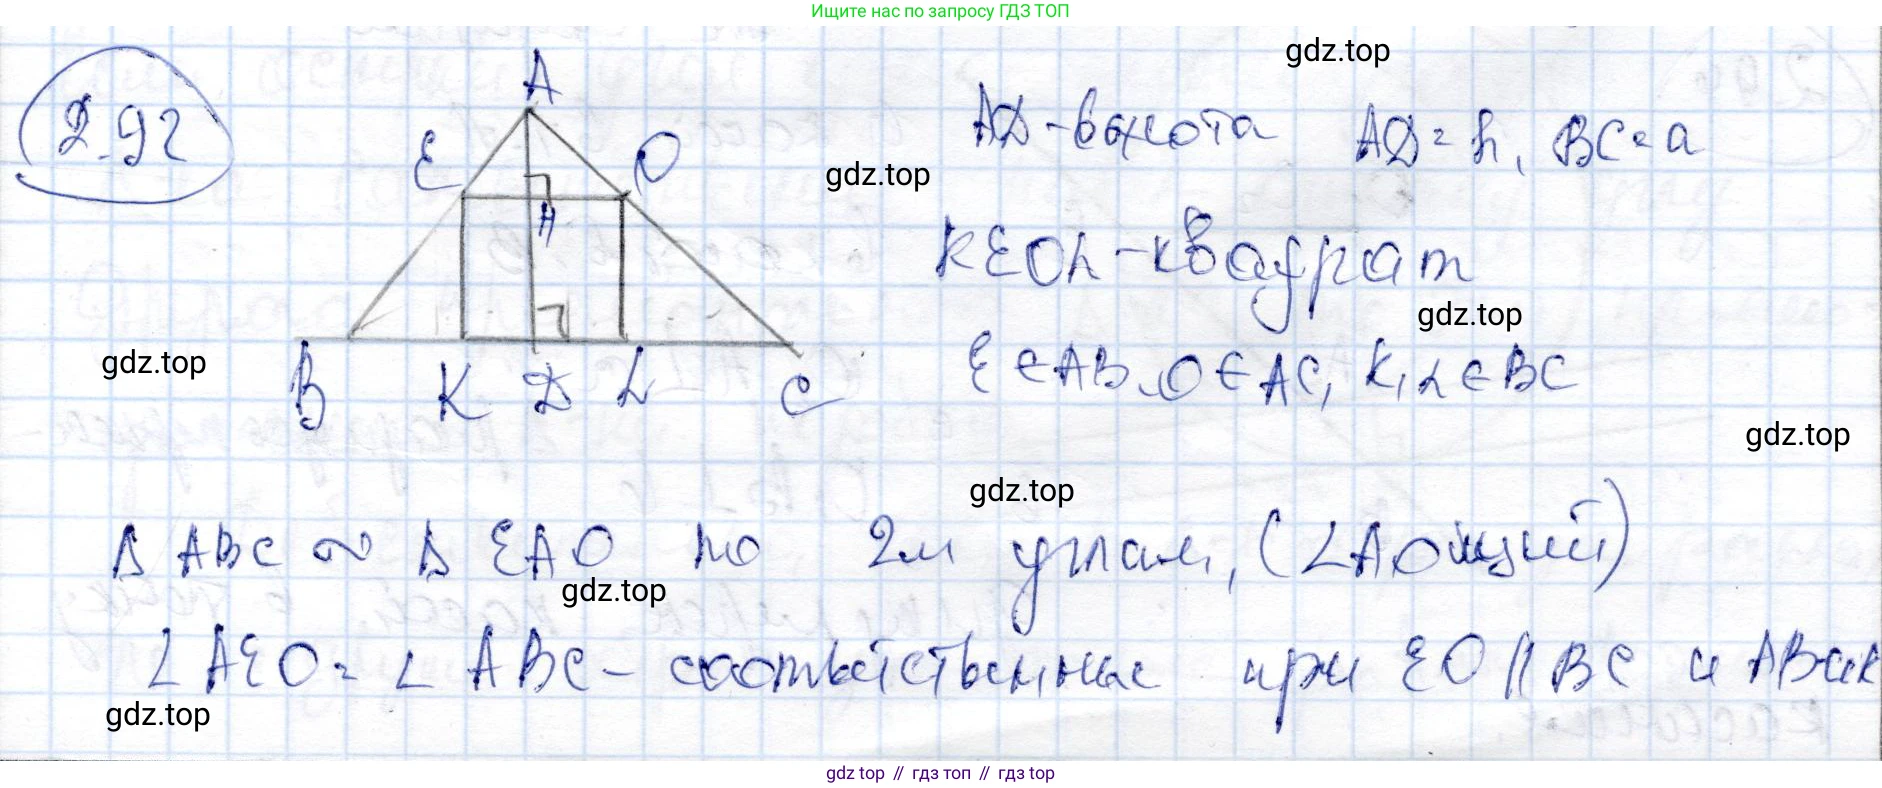 Ищите нас по запросу ГДЗ ТОП
2.92
A
E
O
H
B K D L C
AD - высота AD = h, BC = a
KEOL - квадрат
E ∈ AB, O ∈ AC, K, L ∈ BC
Δ ABC ~ Δ EAO по 2м углам, (∠A общий)
∠ AEO = ∠ ABC - соответственные при EO || BC и AB сек
gdz.top
gdz.top
gdz.top
gdz.top
gdz.top
gdz.top
gdz.top
gdz.top
gdz top // гдз топ // gdz top